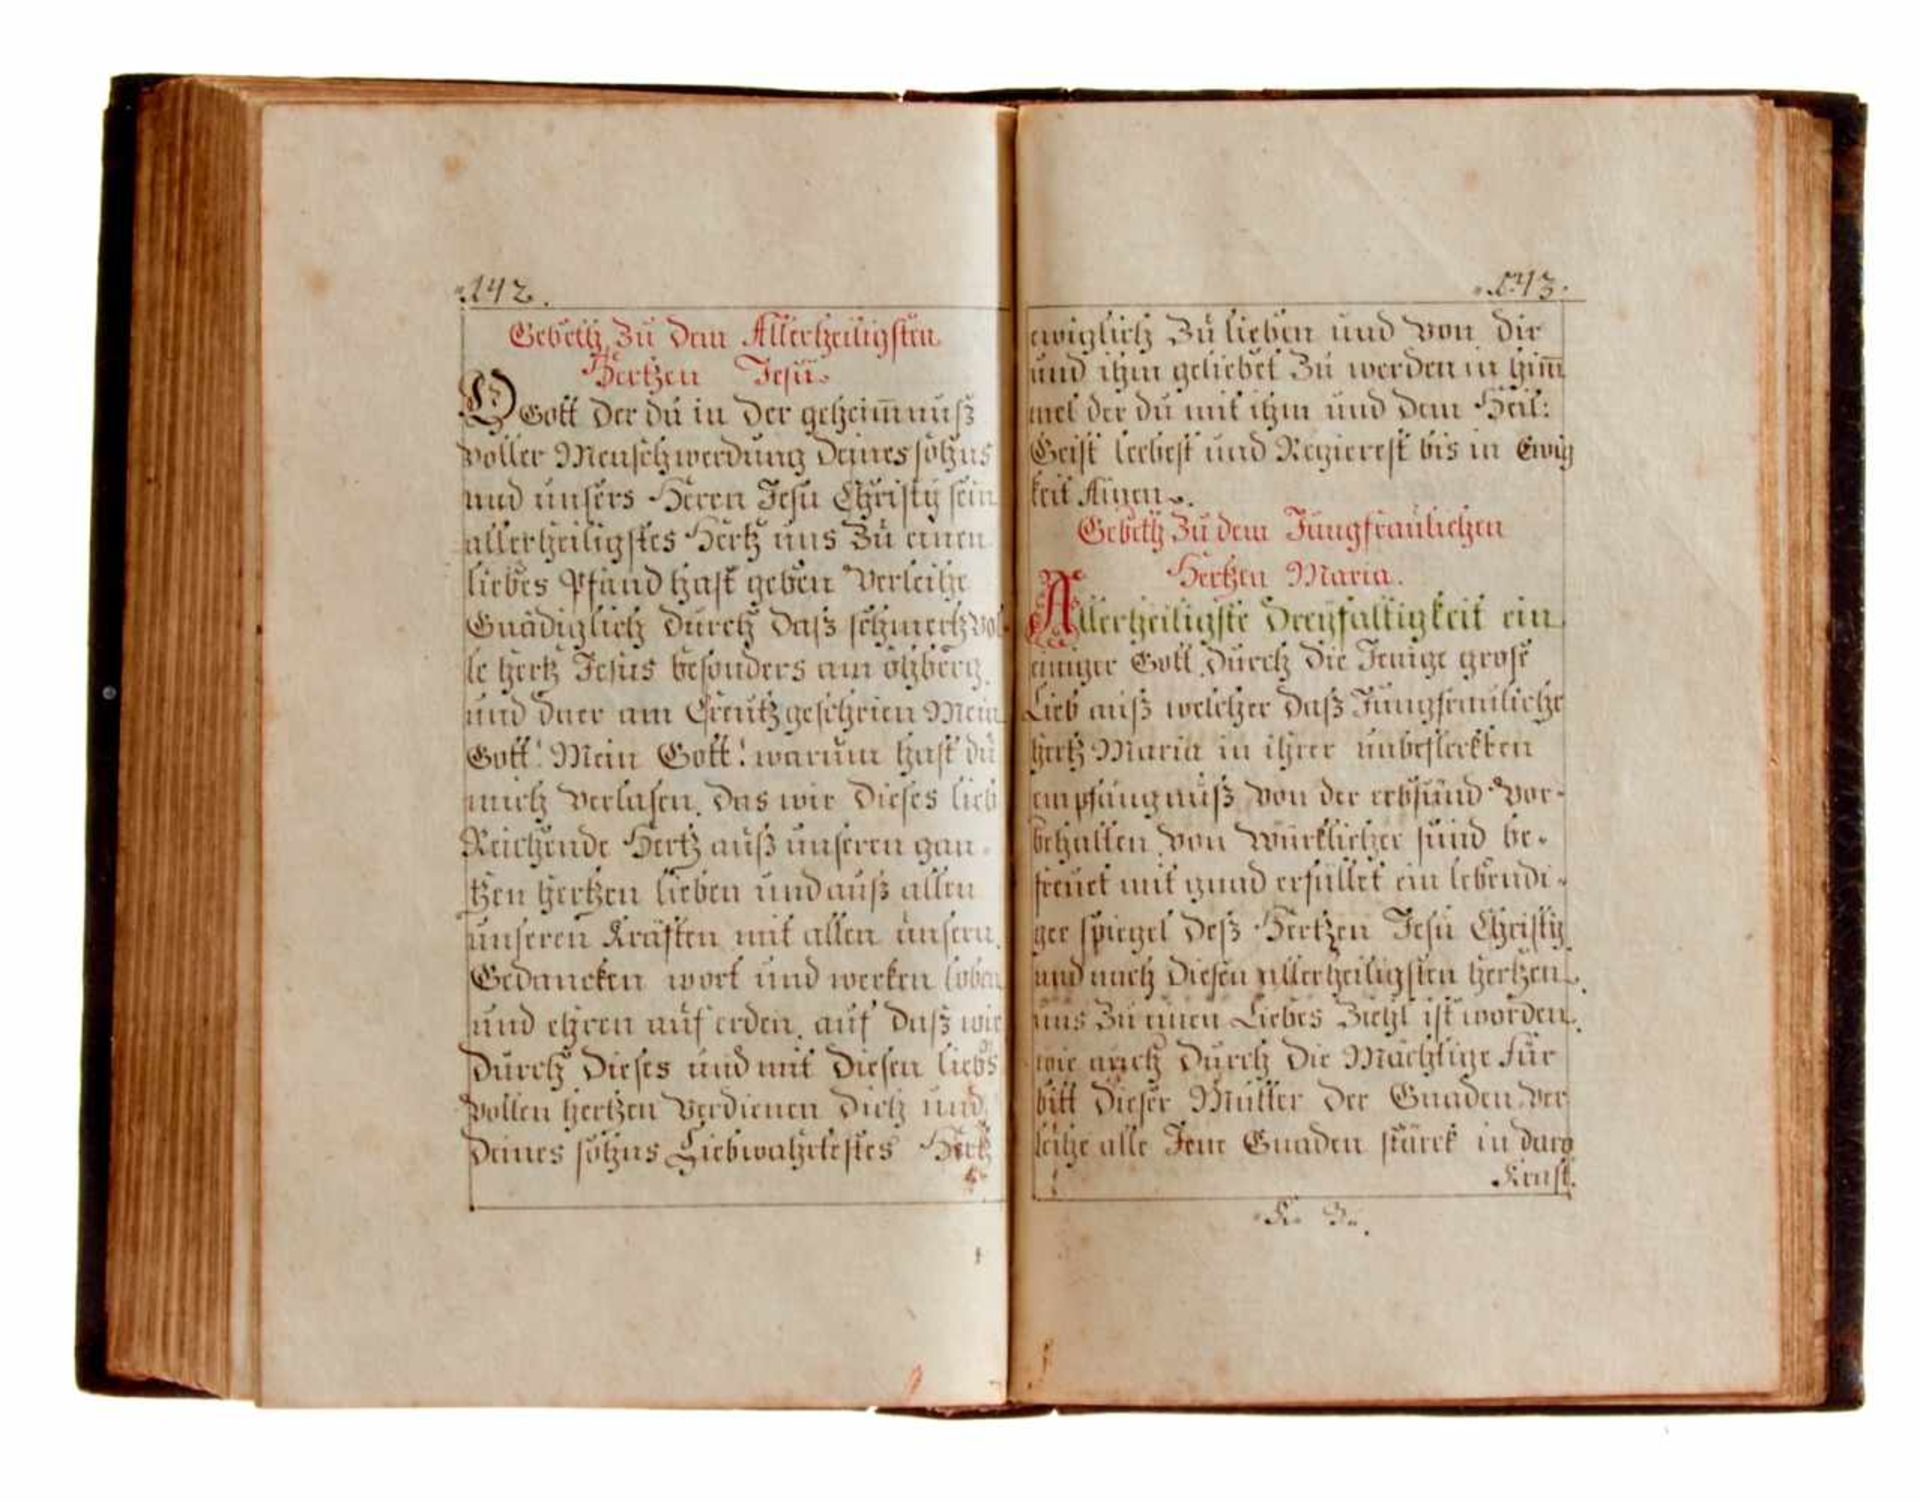 142.
Gebetth Zu dem Allerheiligsten
Hertzen Jesu.
O Gott der du in der geheim̅nuß
voller Menschwerdung deines sohns
und unsers Heren Jesu Christy sein
allerheiligstes Hertz uns Zu einen
liebes Pfand hast geben Verleihe
Gnädiglich durch daß schmertzvol
le hertz Jesus besonders am ölzberg
und da er am Creutz geschrien Mein
Gott! Mein Gott! warum hast du
mich verlasen. das wir dieses lieb
Reichende Hertz auß unseren gan-
tzen hertzen lieben und auß allen
unseren Kräften mit allen unsern
Gedancken wort und werken loben
und ehren auf erden. auf daß wir
durch dieses und mit diesen liebs
vollen hertzen verdienen dich und
deines sohns Liebwahrtestes Hertz
143.
ewiglich Zu lieben und von dir
und ihm geliebet Zu werden in him̅
mel der du mit ihm und dem Heil:
Geist leebest und Regierest bis in Ewig
keit Amen.
Gebeth Zu dem Jungfraulichen
Hertzen Maria.
Allerheiligste Dreyfaltigkeit ein
einiger Gott durch die Jenige grose
Lieb auß welcher daß Jungfrauliche
hertz Maria in ihrer unbefleckten
empfängnuß von der erbsünd Vor-
behalten von würklicher sünd be-
freuet mit gnad erfüllet ein lebendi-
ger spiegel deß Hertzen Jesu Christy
und nach diesen allerheiligsten hertzen
uns Zu einen Liebes Ziehl ist worden.
wie auch durch die Mächtige Für
bitt dieser Mutter der Gnaden ver
leihe alle Jene Gnaden stärck in daro
Kraft.
K. 3.